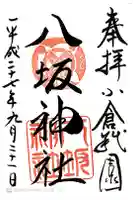 奉拝 小倉祇園
八坂神社
平成二十七年九月二十一日